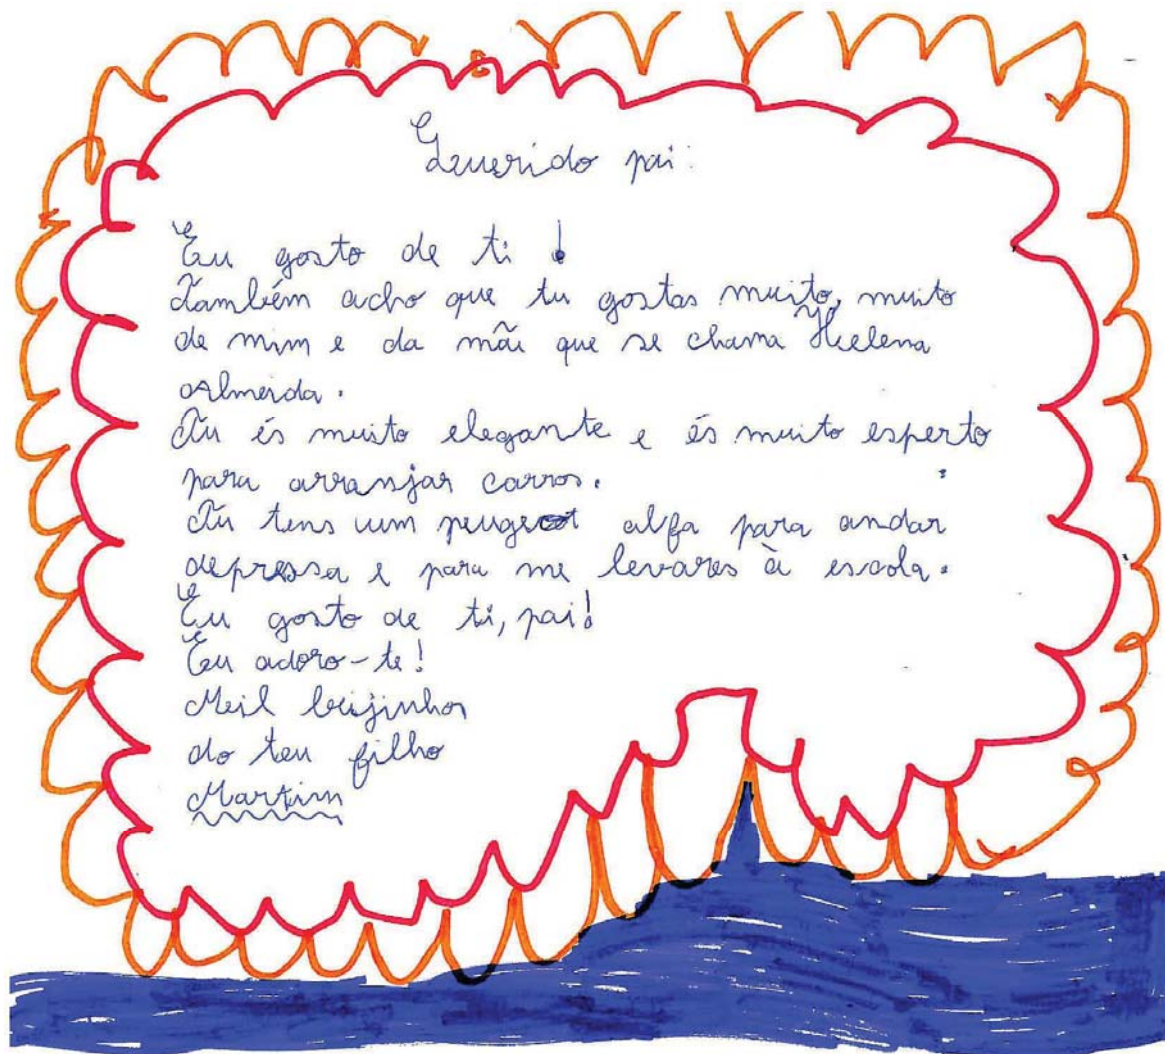 Querido pai:
Eu gosto de ti!
Também acho que tu gostas muito, muito
de mim e da mãi que se chama Helena
Almeida.
Tu és muito elegante e és muito esperto
para arranjar carros.
Tu tens um peugeot alfa para andar
depressa e para me levares à escola.
Eu gosto de ti, pai!
Eu adoro-te!
Mil beijinhos
do teu filho
Martim